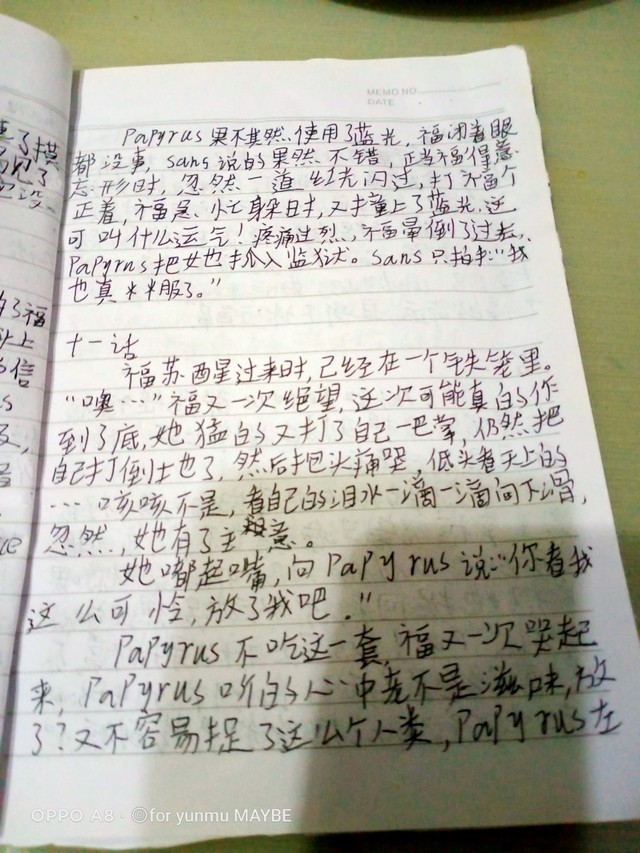 MEMO NO.
DATE
Papyrus 果不其然使用了蓝光，福闭着眼
都没事，sans说的果然不错，正当福得意
忘形时，忽然一道红光闪过，打福个
正着，福急忙躲时，又撞上了蓝光，这
可叫什么运气！疼痛过烈，福晕倒了过去，
Papyrus把她扔入监狱。sans只拍手："我
也真半服了。"
十一话
福苏醒过来时，已经在一个铁笼里。
"噢……"福又一次绝望，这次可能真的作
到了底，她猛的又打了自己一巴掌，仍然把
自己打倒土也了，然后抱头痛哭，低头看天上的
……咳咳不是，看自己的泪水一滴一滴向下滑，
忽然，她有了主意。
她嘟起嘴，向Papyrus说："你看我
这么可怜，放了我吧."
Papyrus不吃这一套，福又一次哭起
来，Papyrus听的心中竟不是滋味，放
了？又不容易捉了这么个人类，Papyrus左
OPPO A8 · ©for yunmu MAYBE